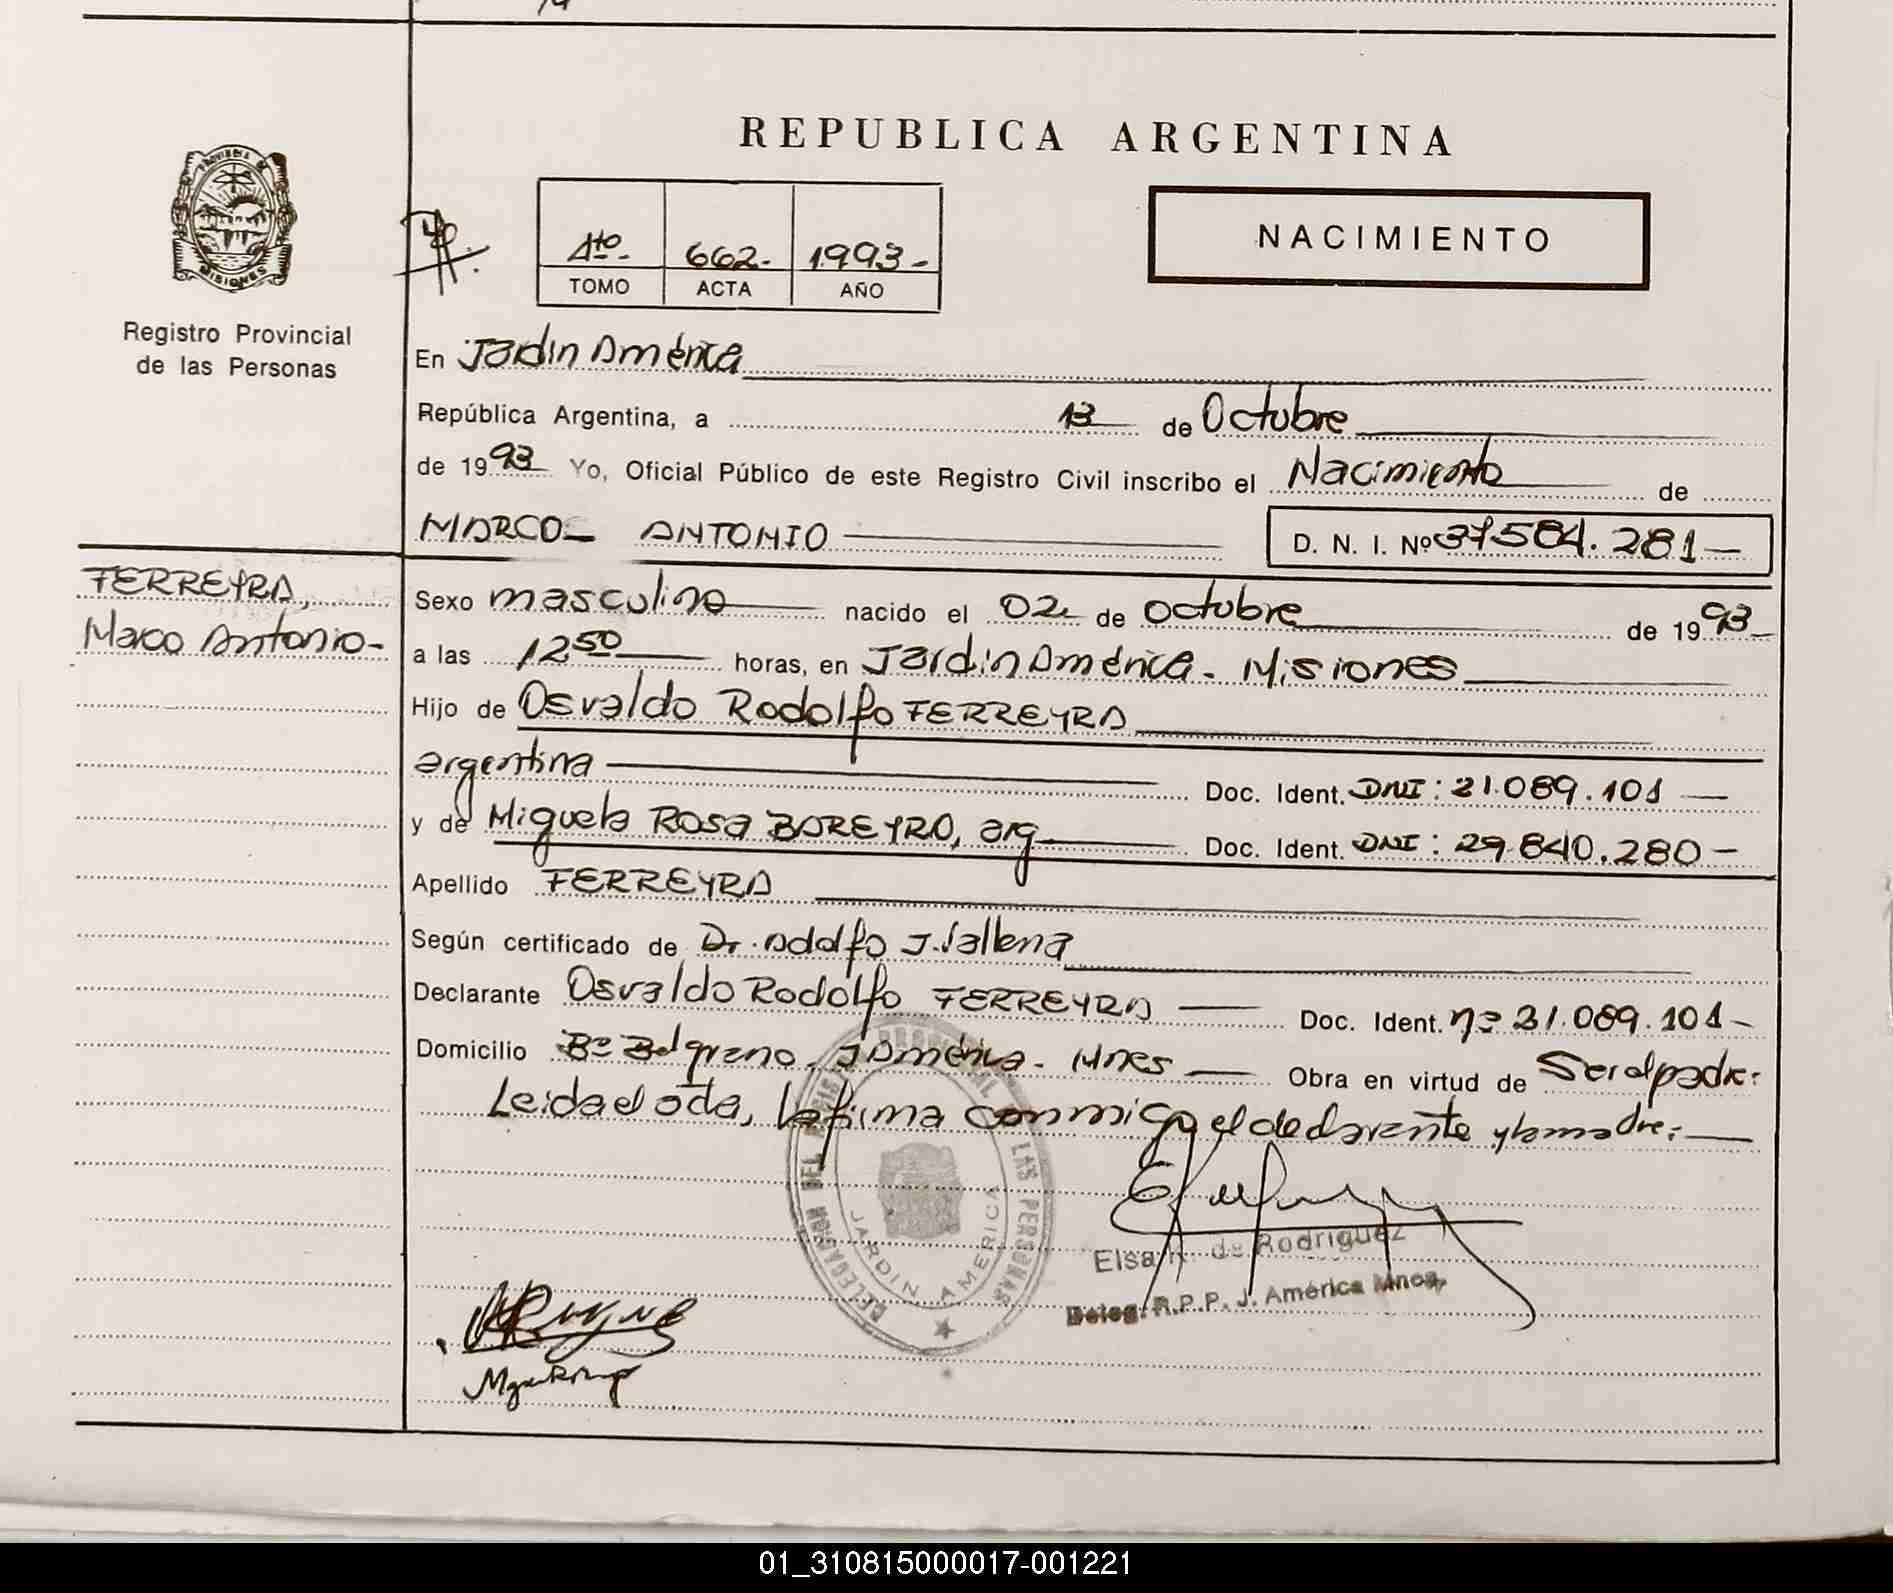 REPUBLICA ARGENTINA
PROVINCIA DE
MISIONES
Registro Provincial
de las Personas
4to- 662- 1993-
TOMO ACTA AÑO
NACIMIENTO
En Jardin América
República Argentina, a 13 de Octubre
de 1993 Yo, Oficial Público de este Registro Civil inscribo el Nacimiento de
MARCO- ANTONIO D. N. I. Nº 37584.281-
FERREYRA,
Marco Antonio-
Sexo masculino nacido el 02 de octubre de 1993
a las 12 50 horas, en Jardin América - Misiones
Hijo de Osvaldo Rodolfo FERREYRA
argentina Doc. Ident. DNI: 21.089.101-
y de Miguela Rosa BAREYRO, arg Doc. Ident. DNI: 29.840.280-
Apellido FERREYRA
Según certificado de Dr. Adolfo J.
Declarante Osvaldo Rodolfo FERREYRA Doc. Ident. nº 21.089.101-
Domicilio Bº Belgrano. J América - Mnes Obra en virtud de Ser el padre:
Leida el acta, la firma conmigo el declarante y la madre:
DELEGACION DEL REGISTRO PROVINCIAL DE LAS PERSONAS
JARDIN AMERICA
Elsa de Rodriguez
Deleg. R.P.P. J. América Mnes.
01_310815000017-001221